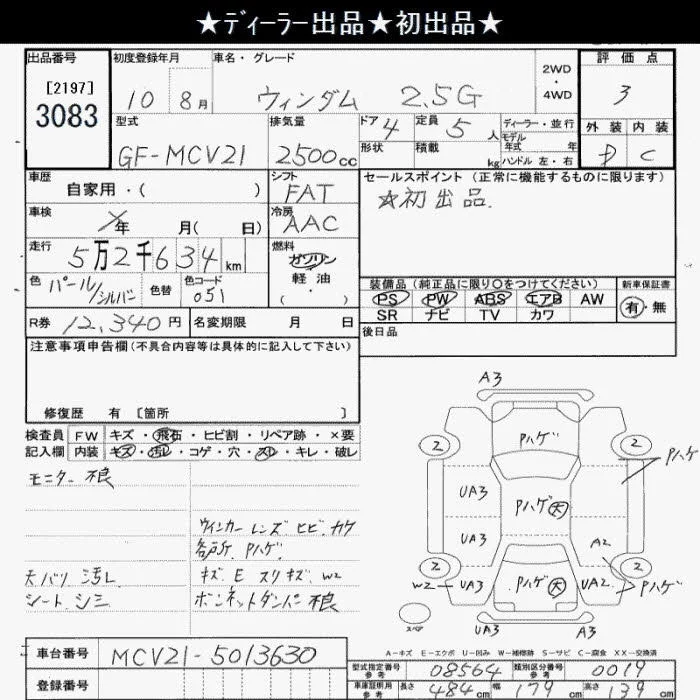 ★ディーラー出品★初出品★
出品番号 初度登録年月 車名・グレード 2WD・4WD 評価点
[2197] 3083 10 8月 ウィンダム 2.5G 3
型式 排気量 ドア 4 定員 5人 ディーラー・並行 外装 内装
GF-MCV21 2500cc 形状 積載 kg モデル年式 年 D C
ハンドル 左・右
車歴 シフト セールスポイント(正常に機能するものに限ります)
自家用・( ) FAT ☆初出品.
車検 年 月( 日) 冷房 AAC
走行 5万2千634km 燃料 ガソリン
軽油
・( )
色 パール/シルバー 色替 色コード 051
装備品(純正品に限り○をつけてください) 新車保証書
PS PW ABS エアB AW 有・無
SR ナビ TV カワ
R券 12,340円 名変期限 月 日 後日品
注意事項申告欄(不具合内容等は具体的に記入して下さい)
修復歴 有 [箇所 ]
検査員 FW キズ・飛石・ヒビ割・リペア跡・×要
記入欄 内装 キズ・汚レ・コゲ・穴・スレ・キレ・破レ
モニター不良
ウィンカーレンズヒビ.カケ
各所.Pハゲ.
天バリ汚レ キズ.E スリキズ.W2
シートシミ ボンネットダンパー不良
A3
2 Pハゲ 2 Pハゲ
UA3 Pハゲ大
UA3 A2
2 2
W2 UA3 Pハゲ大 UA2 Pハゲ
スペア UA3 A3
A-キズ E-エクボ U-凹み W-補修跡 S-サビ C-腐食 XX-交換済
車台番号 MCV21-5013630
型式指定番号 参考 08564 類別区分番号 参考 0019
登録番号
車庫証明用 参考 長さ 484cm 幅 179cm 高さ 139cm